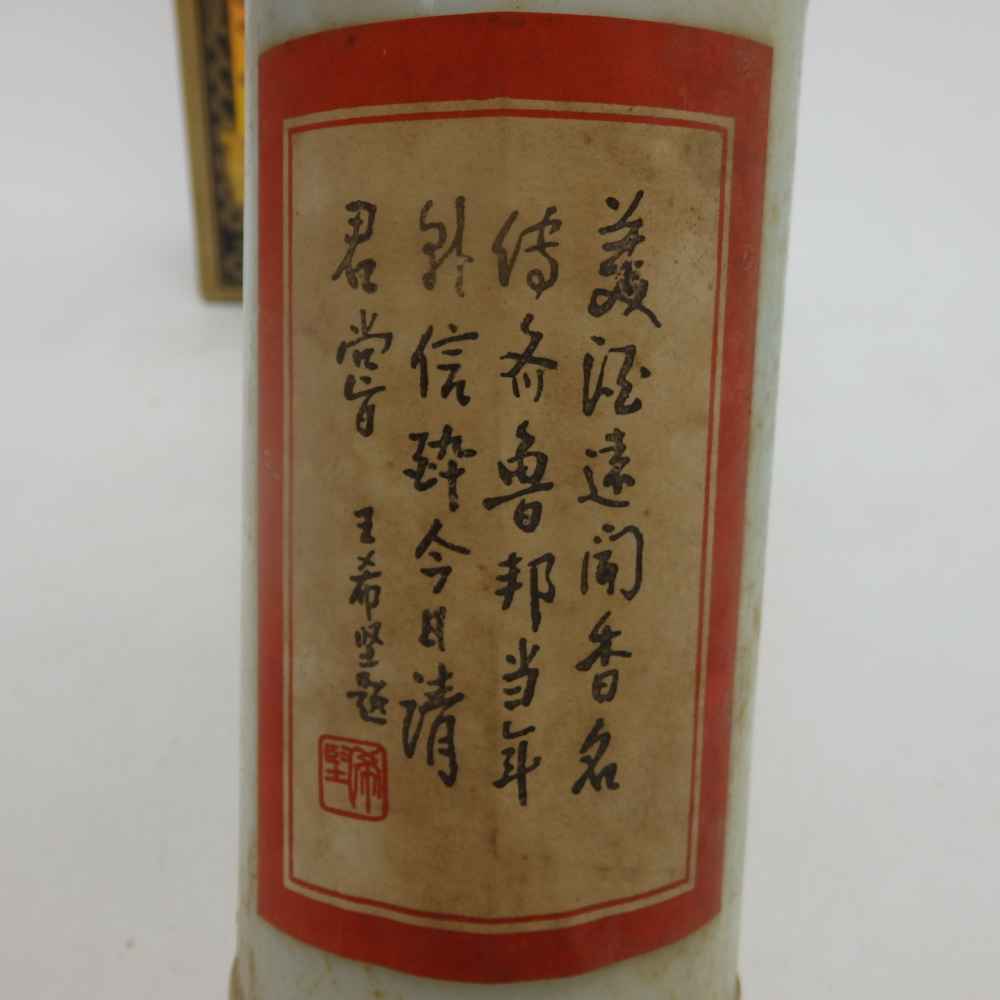 美酒遠闻香名
传齐魯邦当年
韩信醉今日请
君嘗
王希坚题
希堅